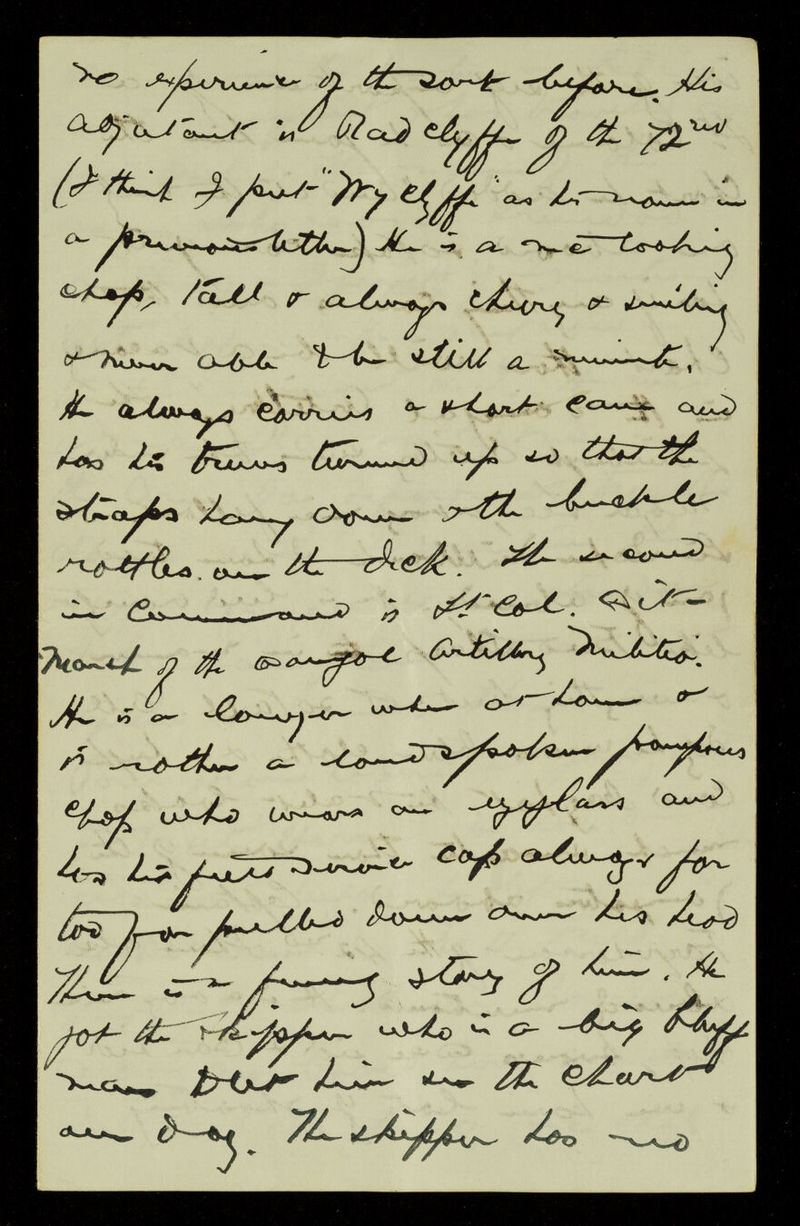 no experience of the sort before. His
adjutant is Radclyffe of the 72nd
(I think I put "Wyclyffe" as his name in
a previous letter) He is a nice looking
chap, tall & always cheery & smiling
& never able to be still a minute.
He always carries a short cane and
has his trews turned up so that the
straps hang down & the buckle
rattles on the deck. The second
in Command is Lt Col. Dit-
March of the Donegal Artillery Militia.
He is a lawyer when at home &
is rather a loud spoken pompous
chap who wears an eyeglass and
has his field service cap always far
too far pulled down over his head
There is a funny story of him. He
got the skipper who is a big bluff
man to let him see the chart
one day. The skipper has no